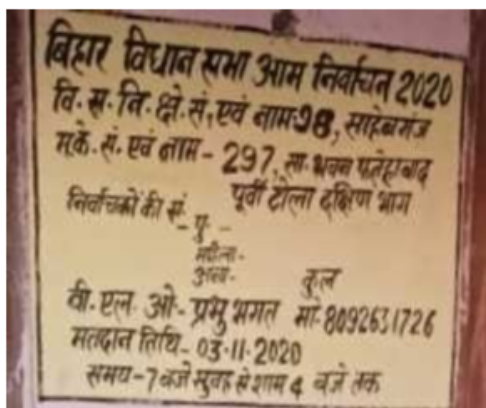 बिहार विधान सभा आम निर्वाचन 2020
वि.स.नि.क्षे.सं. एवं नाम-98, साहेबगंज
म.के.सं. एवं नाम- 297, सा. भवन फतेहाबाद
पूर्वी टोला दक्षिण भाग
निर्वाचकों की सं.
- पु. -
महिला-
अन्य-
कुल
बी.एल.ओ.- प्रभु भगत मो-8092631726
मतदान तिथि- 03-11-2020
समय-7 बजे सुबह से शाम 4 बजे तक